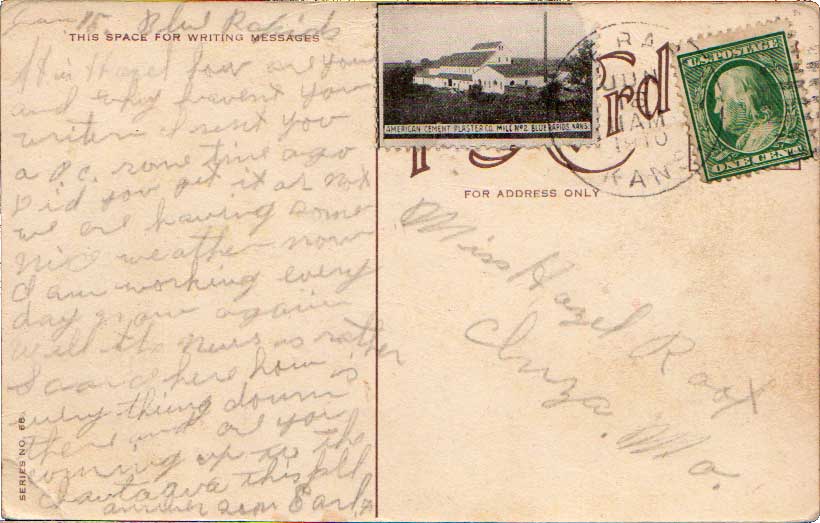 Blue Rapids
THIS SPACE FOR WRITING MESSAGES
Miss Hazel how are you
and why havent you
writen I sent you
a P.c. some time ago
Did you get it or not
we are having some
nice weather now
I am working every
day now again
Well the news is rather
Scarce here how is
every thing down
there and are you
coming up to the
Chautaqua this fall
answer soon Earl
SERIES NO. 68
AMERICAN CEMENT PLASTER CO. MILL NO 2. BLUE RAPIDS, KANS.
Card
1 AM
1910
KANS
U.S. POSTAGE
ONE CENT
FOR ADDRESS ONLY
Miss Hazel Root
Mo.